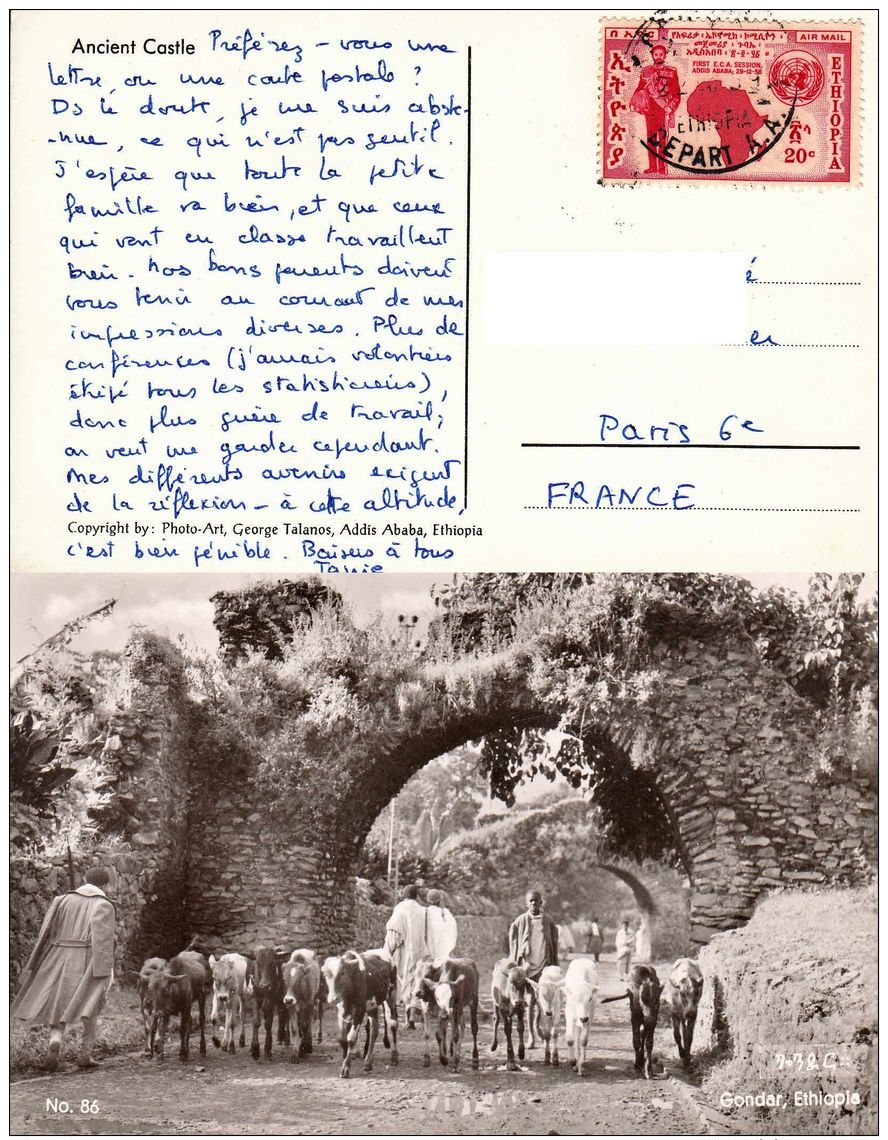 Ancient Castle Préférez-vous une
lettre, ou une carte postale ?
Ds le doute, je me suis abste-
-nue, ce qui n'est pas gentil.
J'espère que toute la petite
famille va bien, et que ceux
qui vont en classe travaillent
bien. Nos bons parents doivent
vous tenir au courant de mes
impressions diverses. Plus de
conférences (j'aurais volontiers
étripé tous les statisticiens),
donc plus guère de travail;
on veut me garder cependant.
Mes différents avenirs exigent
de la réflexion - à cette altitude,
Copyright by: Photo-Art, George Talanos, Addis Ababa, Ethiopia
c'est bien pénible. Baisers à tous
AIR MAIL
FIRST E.C.A. SESSION,
ADDIS ABABA, 29-12-58
ኢትዮጵያ
ETHIOPIA
20c
ETHIOPIA
DEPART A.A.
é
er
Paris 6e
FRANCE
No. 86
ጎንደር።
Gondar, Ethiopia